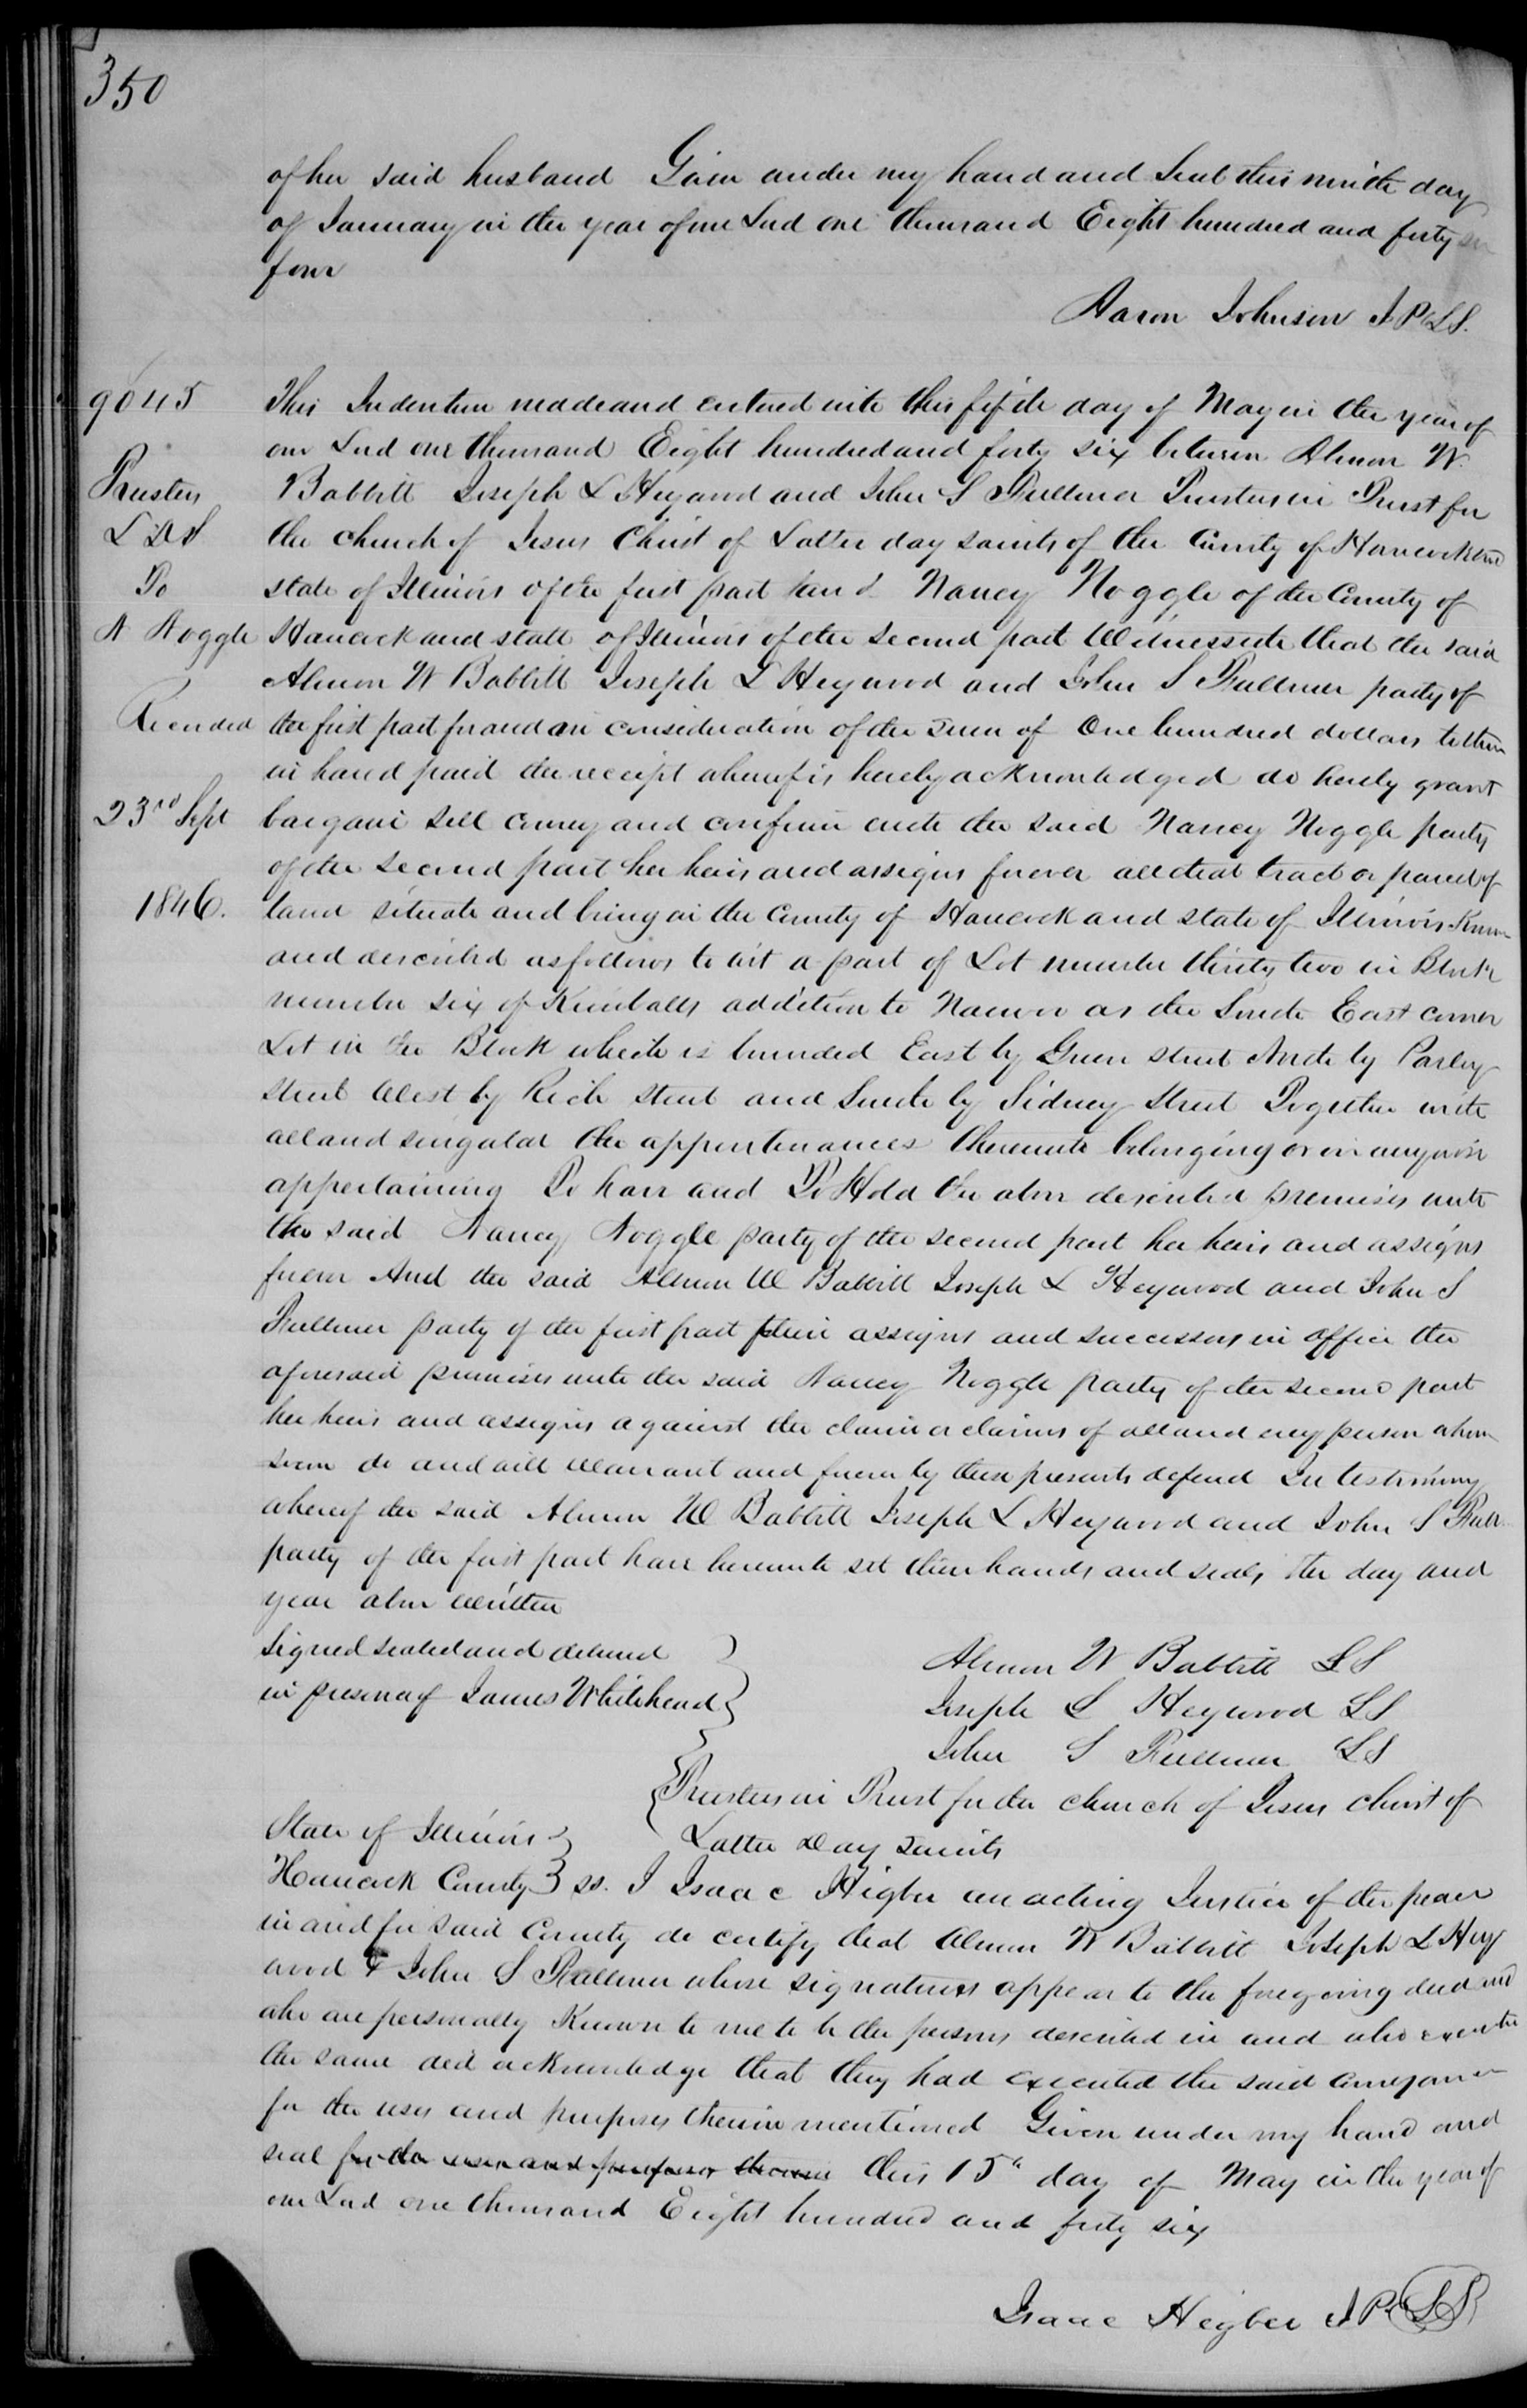 350
of her said husband Given under my hand and Seal this ninth day
of January in the year of our Lord one thousand Eight hundred and forty
four
Aaron Johnson J P LS.
9045
Trustees
L D S
To
N Noggle
Recorded
23rd Sept
1846.
This Indenture made and entered into this fifth day of May in the year of
our Lord one thousand Eight hundred and forty six between Almon W.
Babbitt Joseph L Heywood and John S Fullmer Trustees in Trust for
the church of Jesus Christ of Latter day saints of the County of Hancock and
state of Illinois of the first part and Nancy Noggle of the County of
Hancock and state of Illinois of the second part Witnesseth that the said
Almon W Babbitt Joseph L Heywood and John S Fullmer party of
the first part for and in consideration of the sum of One hundred dollars to them
in hand paid the receipt whereof is hereby acknowledged do hereby grant
bargain sell convey and confirm unto the said Nancy Noggle party
of the second part her heirs and assigns forever all that tract or parcel of
land situate and being in the County of Hancock and state of Illinois Known
and described as follows to wit a part of Lot number thirty two in Block
number six of Kimballs addition to Nauvoo as the South East corner
Lot in the Block which is bounded East by Green street North by Parley
street West by Rich street and South by Sidney Street Together with
all and singular the appurtenances thereunto belonging or in anywise
appertaining To have and To Hold the above described premises unto
the said Nancy Noggle party of the second part her heirs and assigns
forever And the said Almon W Babbitt Joseph L Heywood and John S
Fullmer party of the first part their assigns and successors in office the
aforesaid premises unto the said Nancy Noggle party of the second part
her heirs and assigns against the claim or claims of all and every person whom
soever do and will Warrant and forever by these presents defend In testimony
whereof the said Almon W Babbitt Joseph L Heywood and John S Fullr
party of the first part have hereunto set their hands and seals the day and
year above written
Signed sealed and delivered
in presence of James Whitehead
Almon W Babbitt LS
Joseph L Heywood LS
John S Fullmer LS
Trustees in Trust for the church of Jesus Christ of
Latter Day Saints
State of Illinois
Hancock County ss. I Isaac Higbee an acting Justice of the peace
in and for said County do certify that Almon W Babbitt Joseph L Hey
wood & John S Fullmer whose signatures appear to the foregoing deed and
who are personally Known to me to be the persons described in and who executed
the same did acknowledge that they had executed the said conveyance
for the uses and purposes therein mentioned Given under my hand and
seal for the uses and purposes therein this 15th day of May in the year of
our Lord one thousand Eight hundred and forty six
Isaac Higbee J P LS